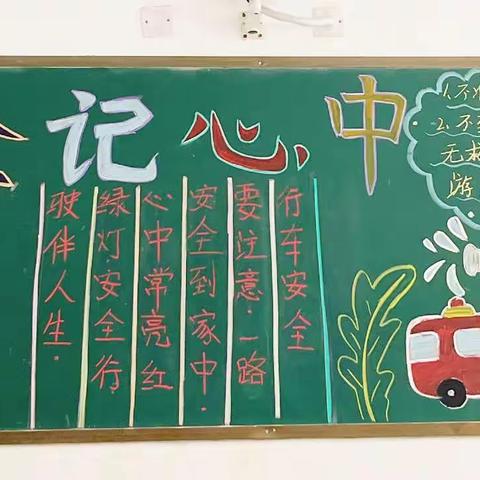 全记心中
行车安全
要注意.一路
安全到家中.
心中常亮红
绿灯安全行
驶伴人生.
1.不
2.不
无
游